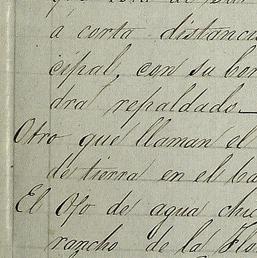 que
á corta distanci
cipal, con su
dra respaldado.
Otro que llaman el
de tierra en el
El Ojo de agua chi
rancho de la Flo